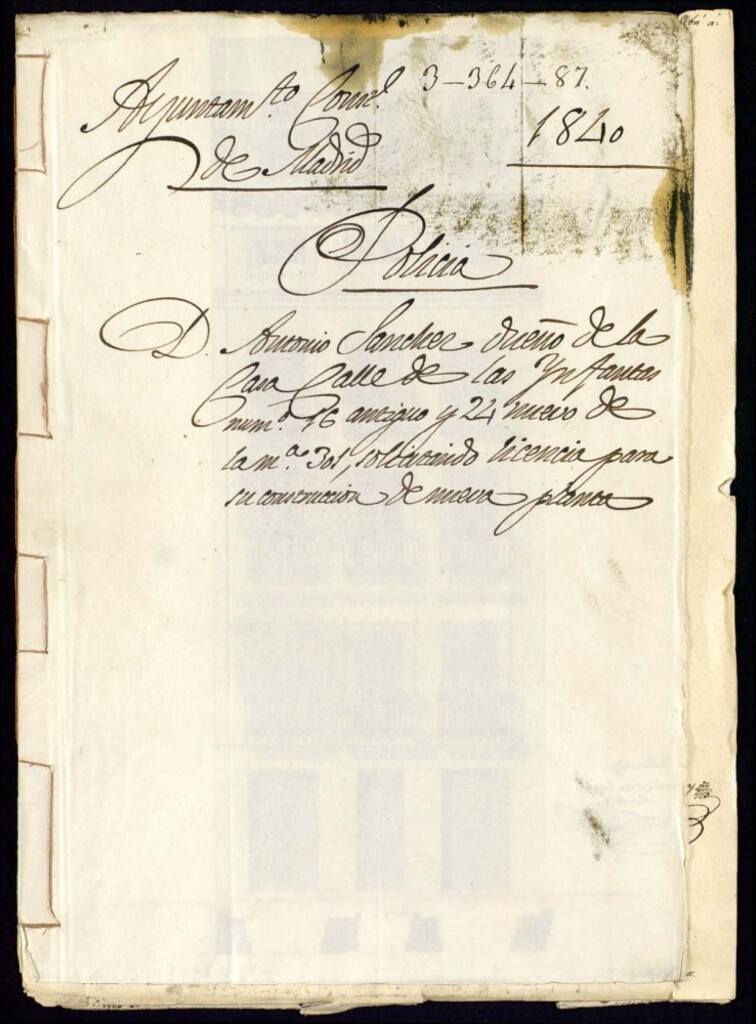 Ayuntam.to Conl. 3-364-87.
1840
de Madrid
Policia
D. Antonio Sanchez dueño de la
Casa Calle de las Ynfantas
num.o 16 antiguo y 24 nuevo de
la m.a 301, solicitando licencia para
su construccion de nueva planta